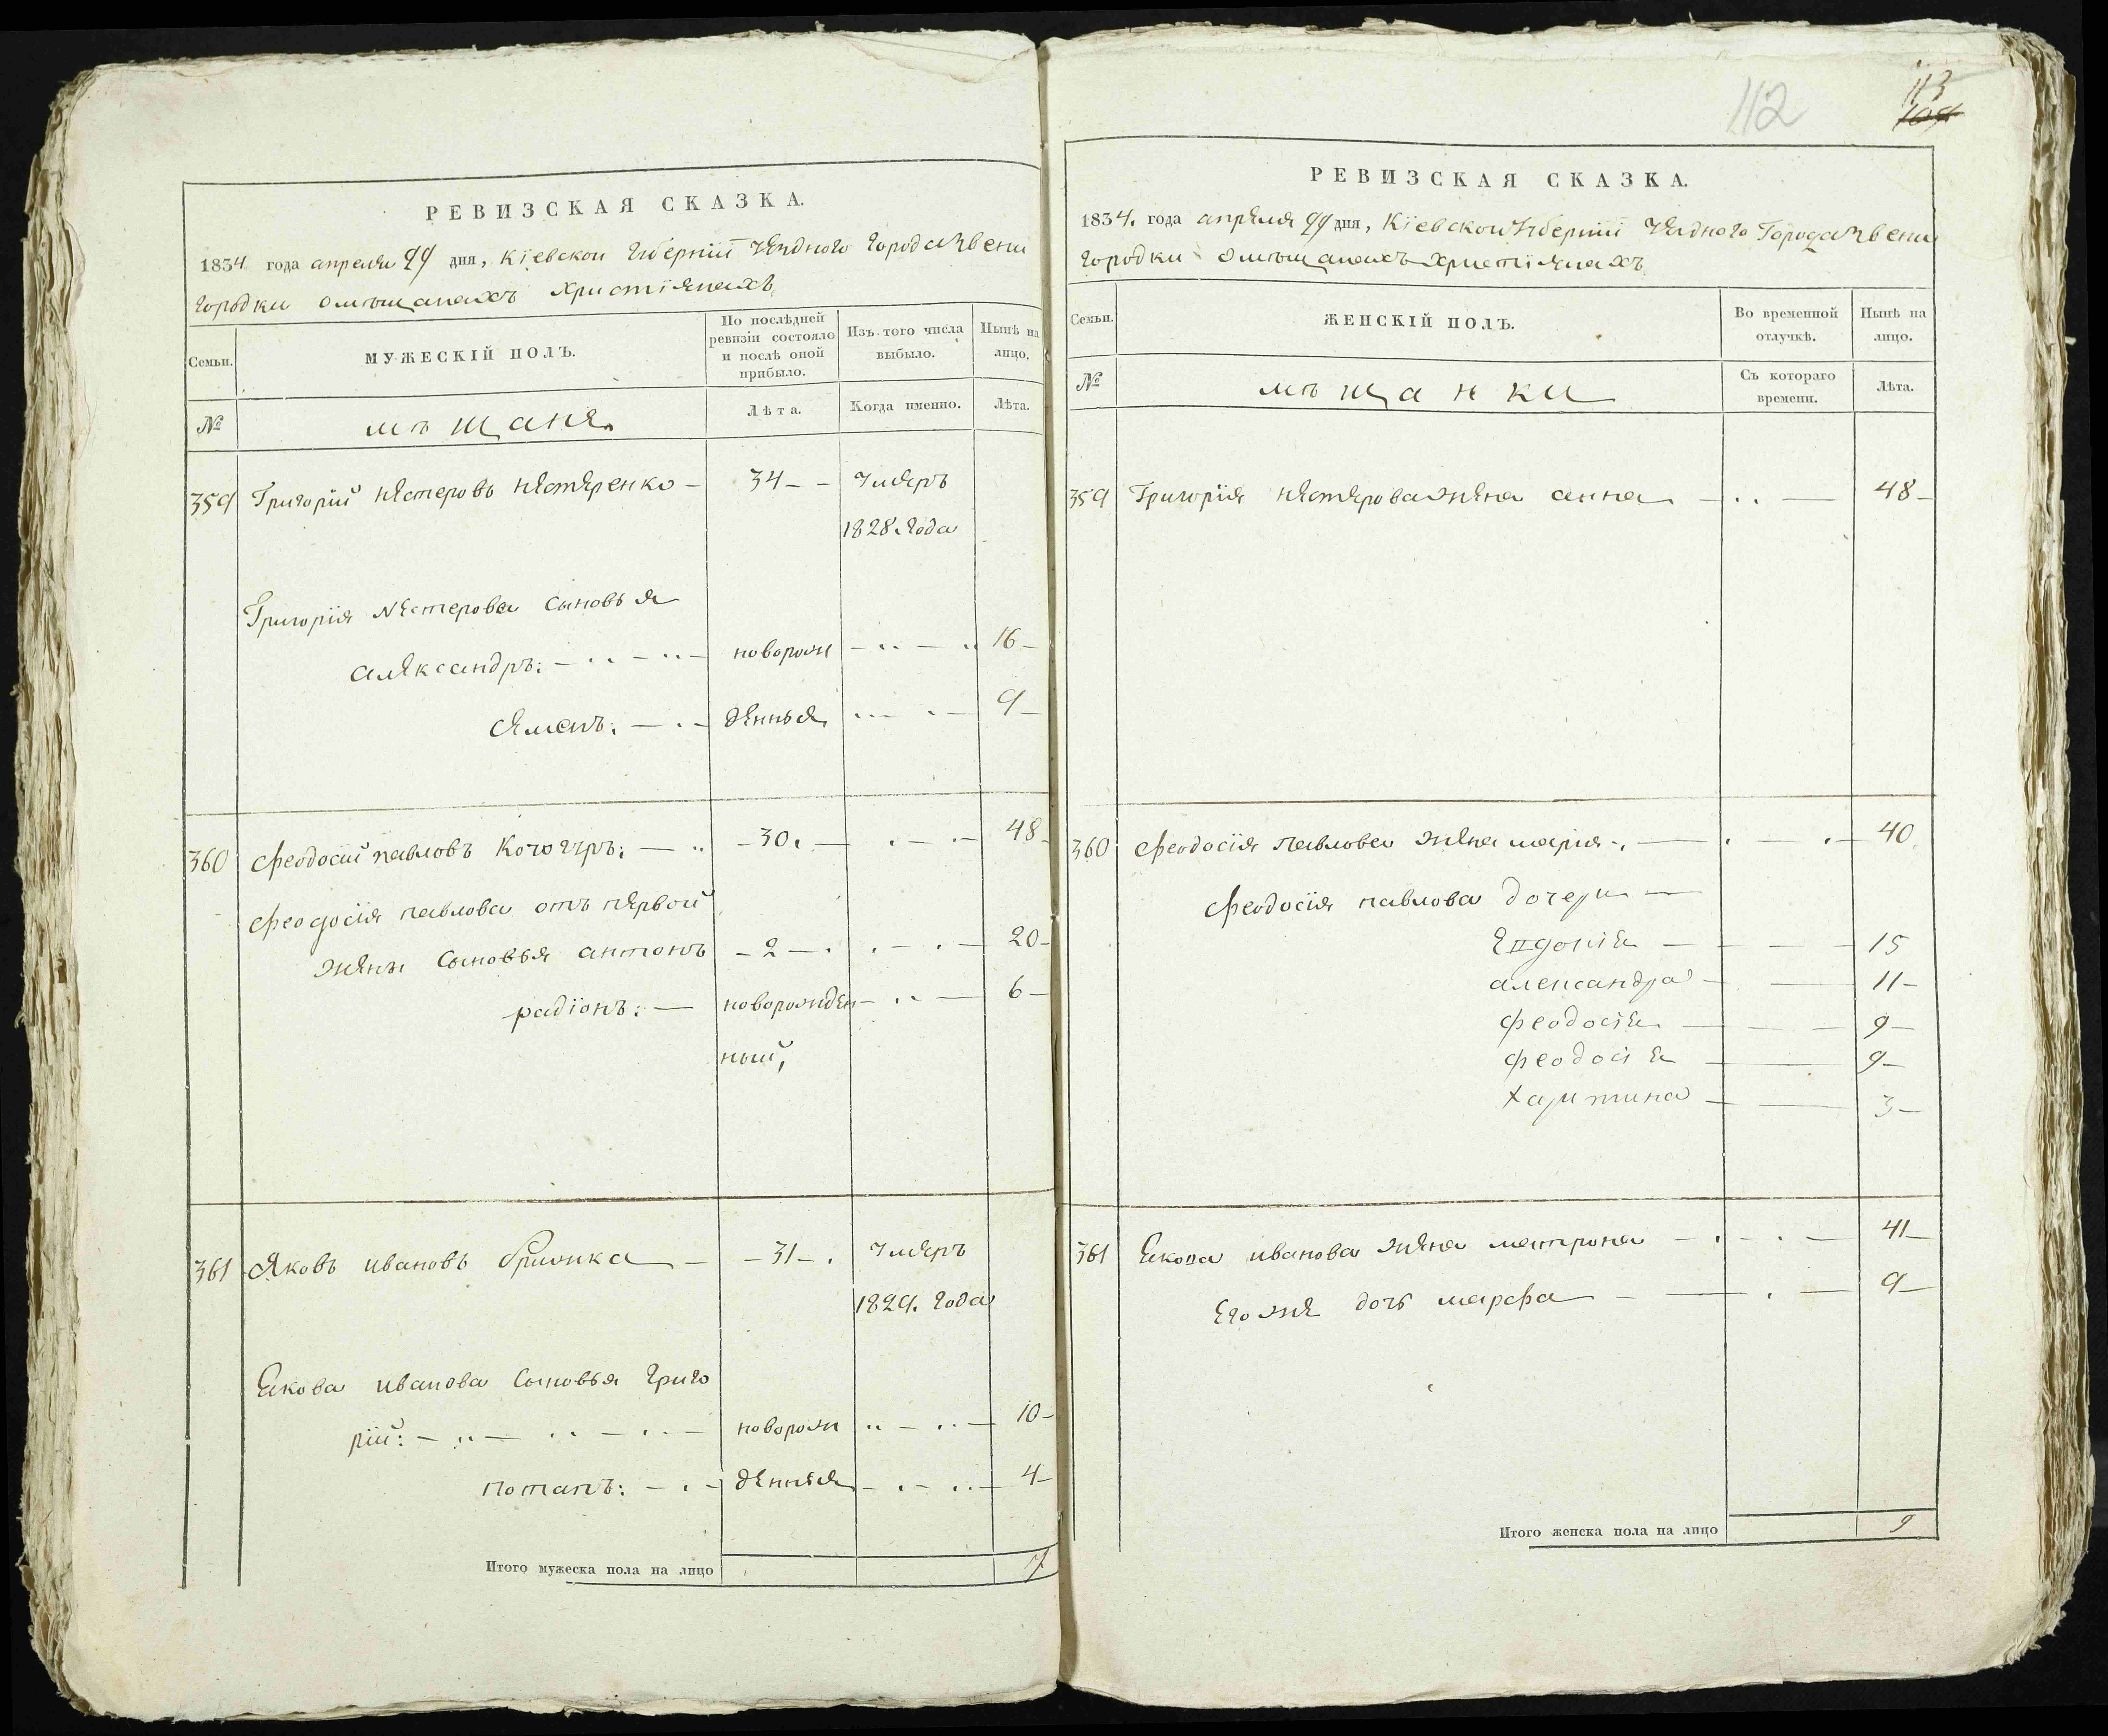 РЕВИЗСКАЯ СКАЗКА.
1834 года апреля дня, Кіевской Губерніи уезднаго города Звени
городки о мѣщанахъ христіянахъ
Семьи.
МУЖЕСКІЙ ПОЛЪ.
По послѣдней ревизіи состояло и послѣ оной прибыло.
Изъ того числа выбыло.
Нынѣ на лицо.
№
мѣщане
Лѣта.
Когда именно.
Лѣта.
359 Григорій нестеровъ нестеренко 34 умеръ
1828 года
Григорія Нестерова сыновья
александръ: новорож 16
семенъ: денныя 9
360 Феодосий павловъ 30 48
Феодосія павлова отъ первой
жены сыновья антонъ 2 20
радіонъ: новорожден 6
ный,
361 Яковъ ивановъ 31 умеръ
1829. года
Якова иванова сыновья григо
рій: новорож 10
потапъ: денныя 4
Итого мужеска пола на лицо 7
112
113
104
РЕВИЗСКАЯ СКАЗКА.
1834. года апреля дня, Кіевской Губерніи уезднаго Города Звени
городки о мѣщанахъ христіянахъ
Семьи.
ЖЕНСКІЙ ПОЛЪ.
Во временной отлучкѣ.
Нынѣ на лицо.
№
мѣщанки
Съ котораго времени.
Лѣта.
359 Григорія нестерова жена анна 48
360 Феодосія павлова жена марія 40
Феодосія павлова дочери
15
александра 11
феодосія 9
феодосія 9
харитина 3
361 Якова иванова жена матрона 41
его же дочь марфа 9
Итого женска пола на лицо 9